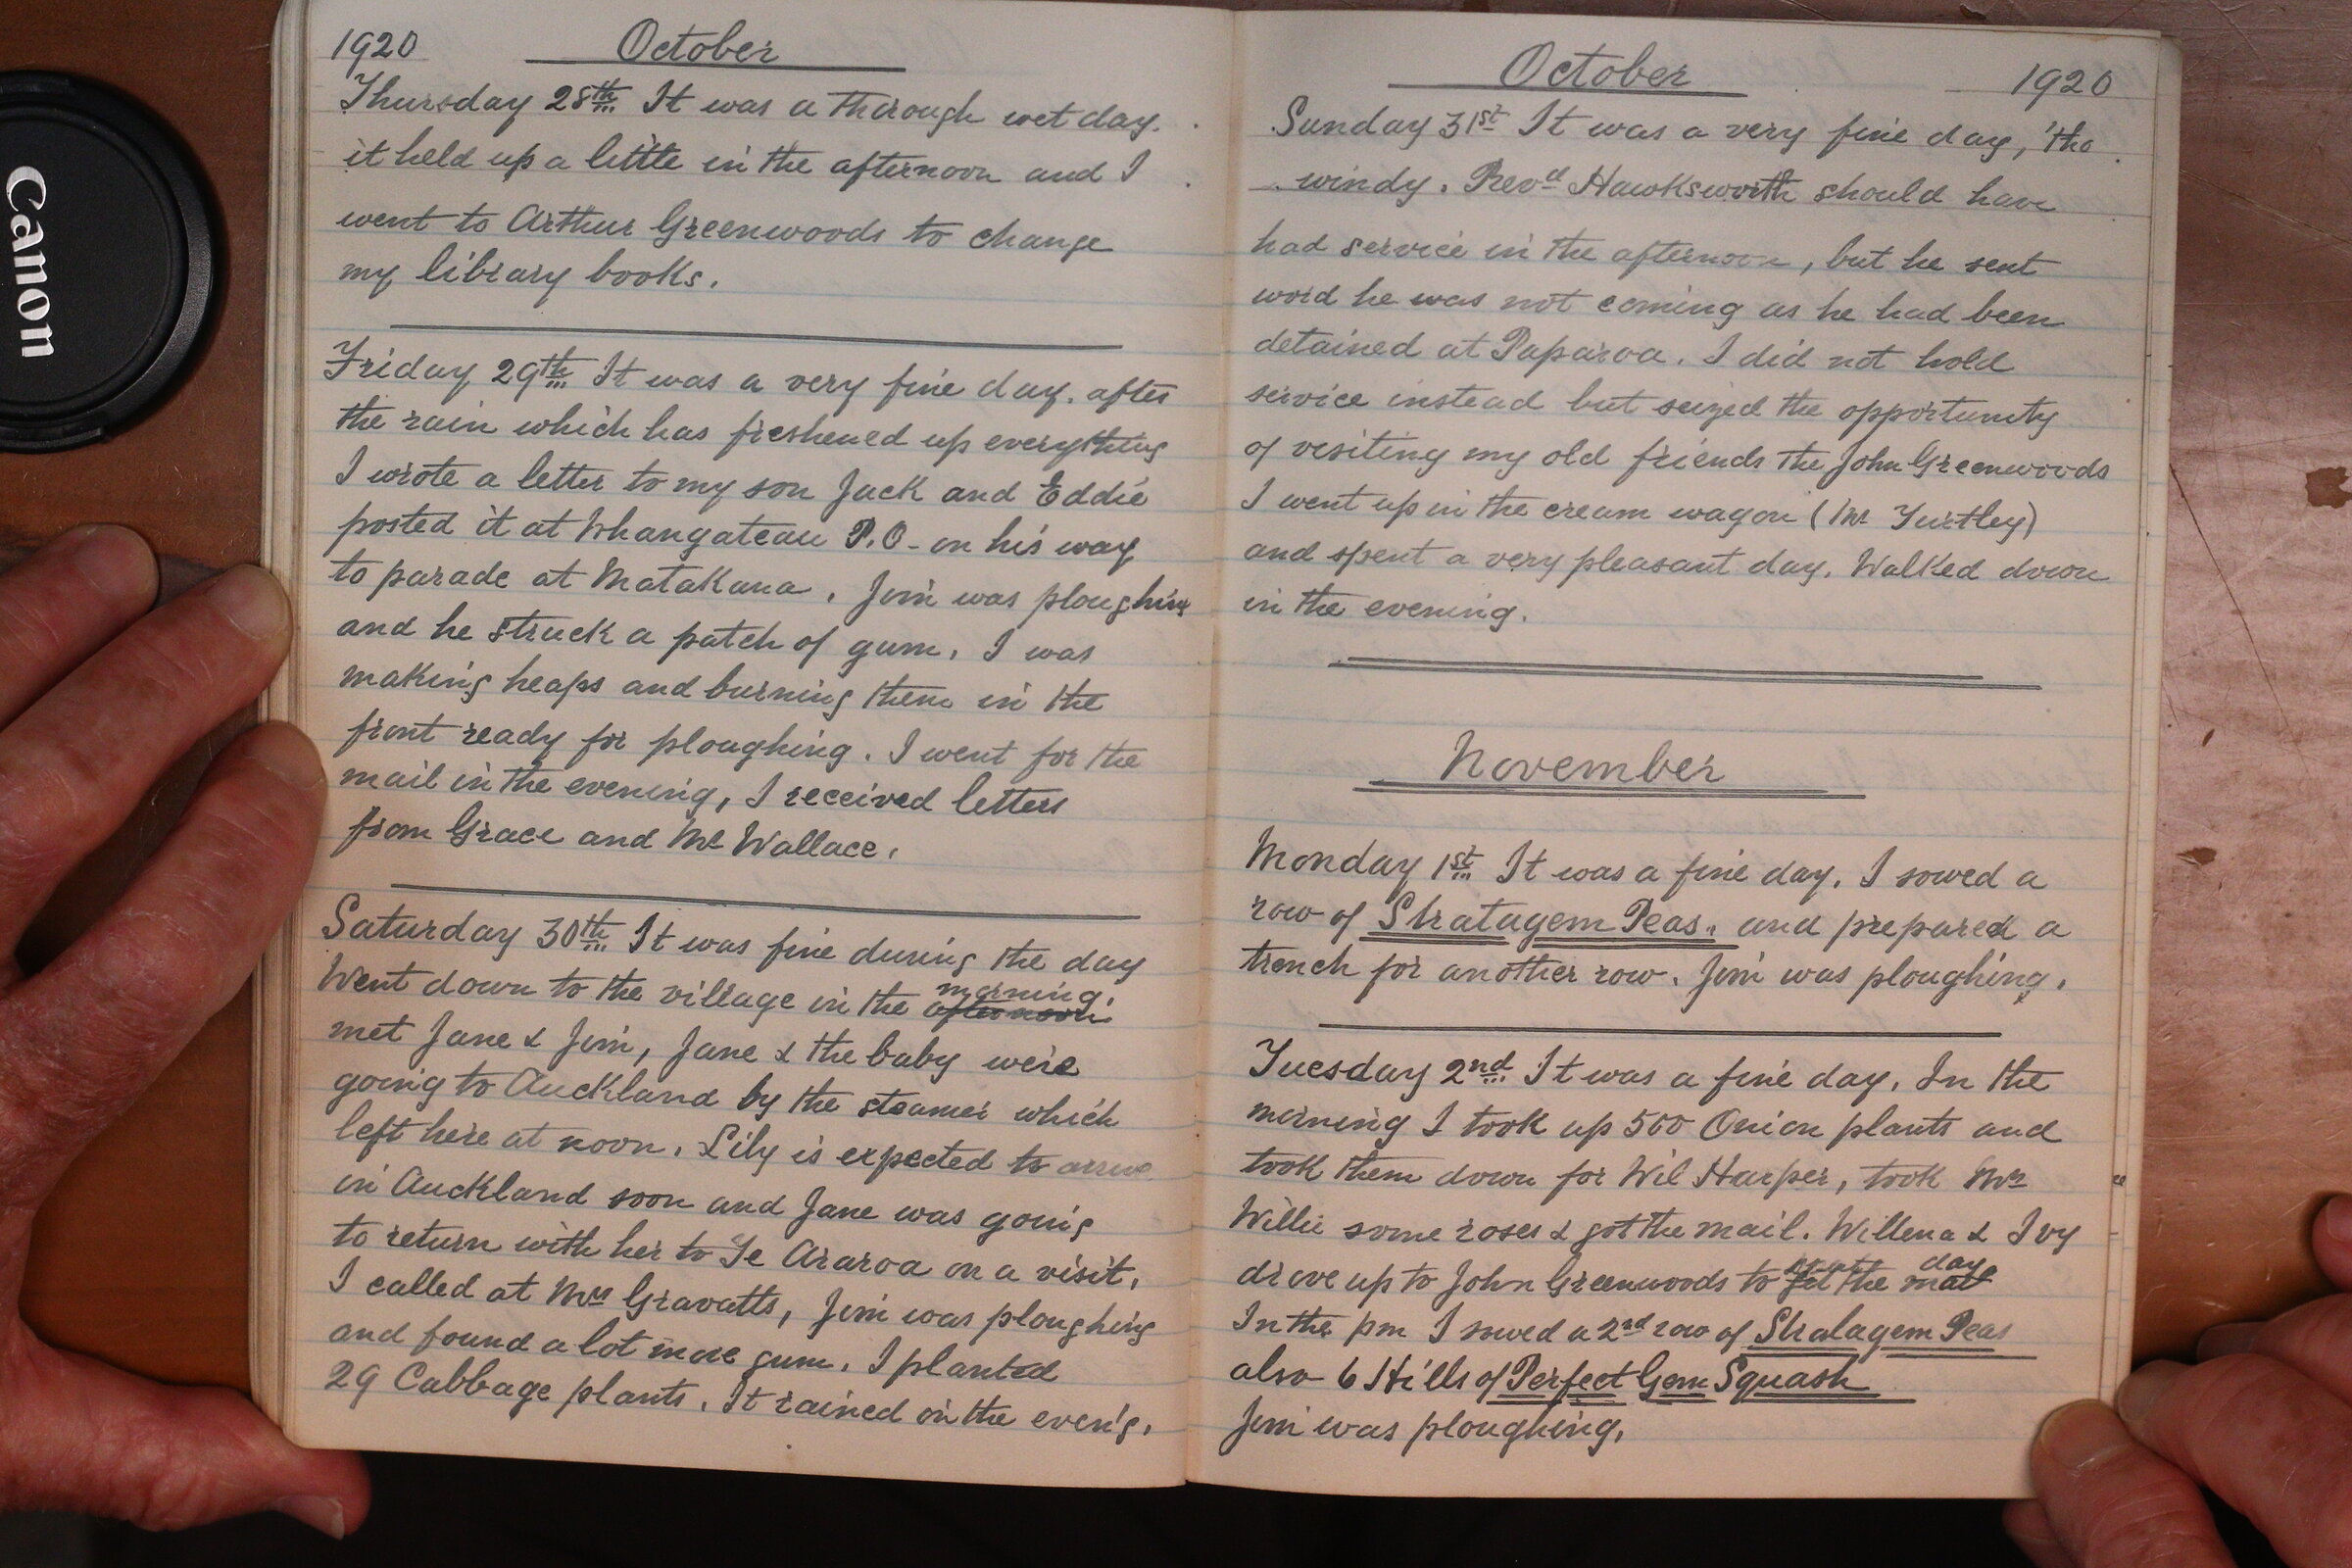 Canon
1920 October
Thursday 28th It was a thorough wet day.
it held up a little in the afternoon and I
went to Arthur Greenwoods to change
my library books.
Friday 29th It was a very fine day. after
the rain which has freshened up everything
I wrote a letter to my son Jack and Eddie
posted it at Whangateau P.O - on his way
to parade at Matakana. Jim was ploughing
and he struck a patch of gum. I was
making heaps and burning them in the
front ready for ploughing. I went for the
mail in the evening, I received letters
from Grace and Mr Wallace.
Saturday 30th It was fine during the day
Went down to the village in the afternoon morning.
met Jane & Jim, Jane & the baby were
going to Auckland by the steamer which
left here at noon. Lily is expected to arrive
in Auckland soon and Jane was going
to return with her to Te Araroa on a visit.
I called at Mrs Gravatts, Jim was ploughing
and found a lot more gum. I planted
29 Cabbage plants. It rained in the even'g.
October 1920
Sunday 31st It was a very fine day, 'tho
windy. Revd Hawksworth should have
had service in the afternoon, but he sent
word he was not coming as he had been
detained at Paparoa. I did not hold
service instead but seized the opportunity
of visiting my old friends the John Greenwoods
I went up in the cream wagon (Mr Turtley)
and spent a very pleasant day. Walked down
in the evening.
November
Monday 1st It was a fine day. I sowed a
row of Stratagem Peas. and prepared a
trench for another row. Jim was ploughing.
Tuesday 2nd It was a fine day. In the
morning I took up 500 Onion plants and
took them down for Wil Harper, took Mrs
Willie some roses & got the mail. Willena & Ivy
drove up to John Greenwoods to the day
In the pm I sowed a 2nd row of Stratagem Peas
also 6 Hills of Perfect Gem Squash
Jim was ploughing.